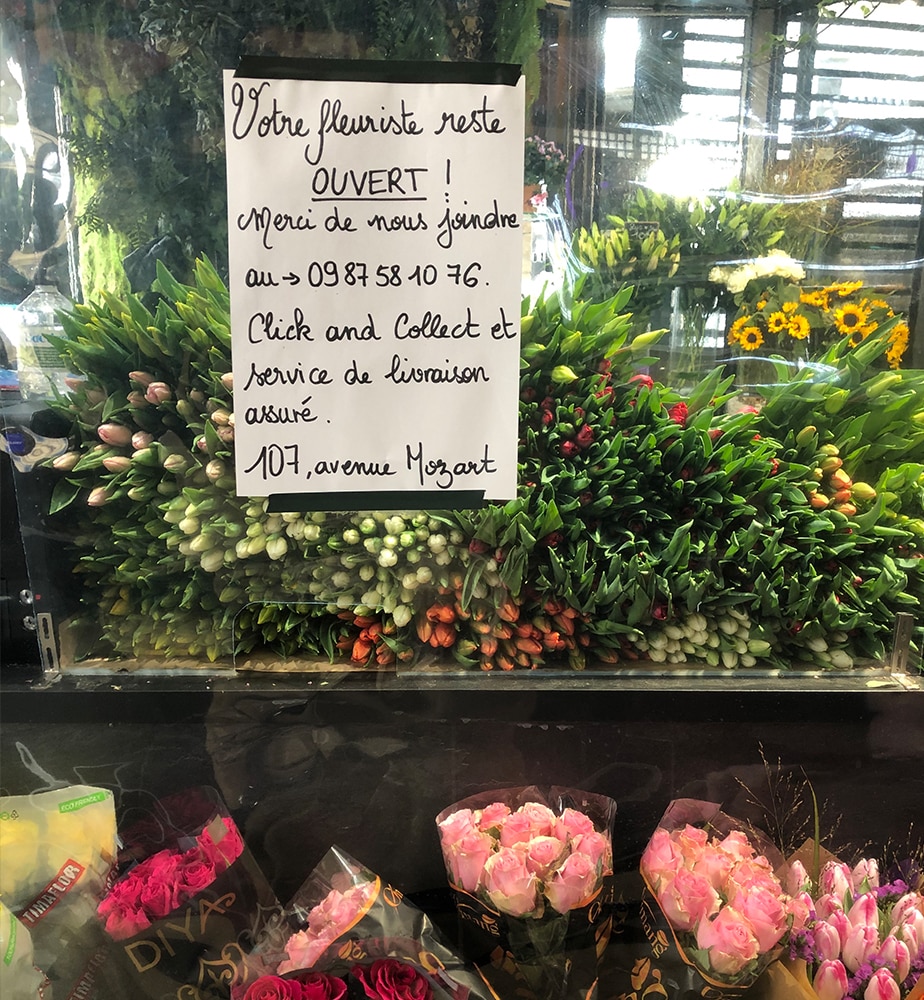 Votre fleuriste reste
OUVERT !
Merci de nous joindre
au → 09 87 58 10 76.
Click and Collect et
service de livraison
assuré.
107, avenue Mozart
ECO FRIENDLY
TIMAFLOR
DIYA